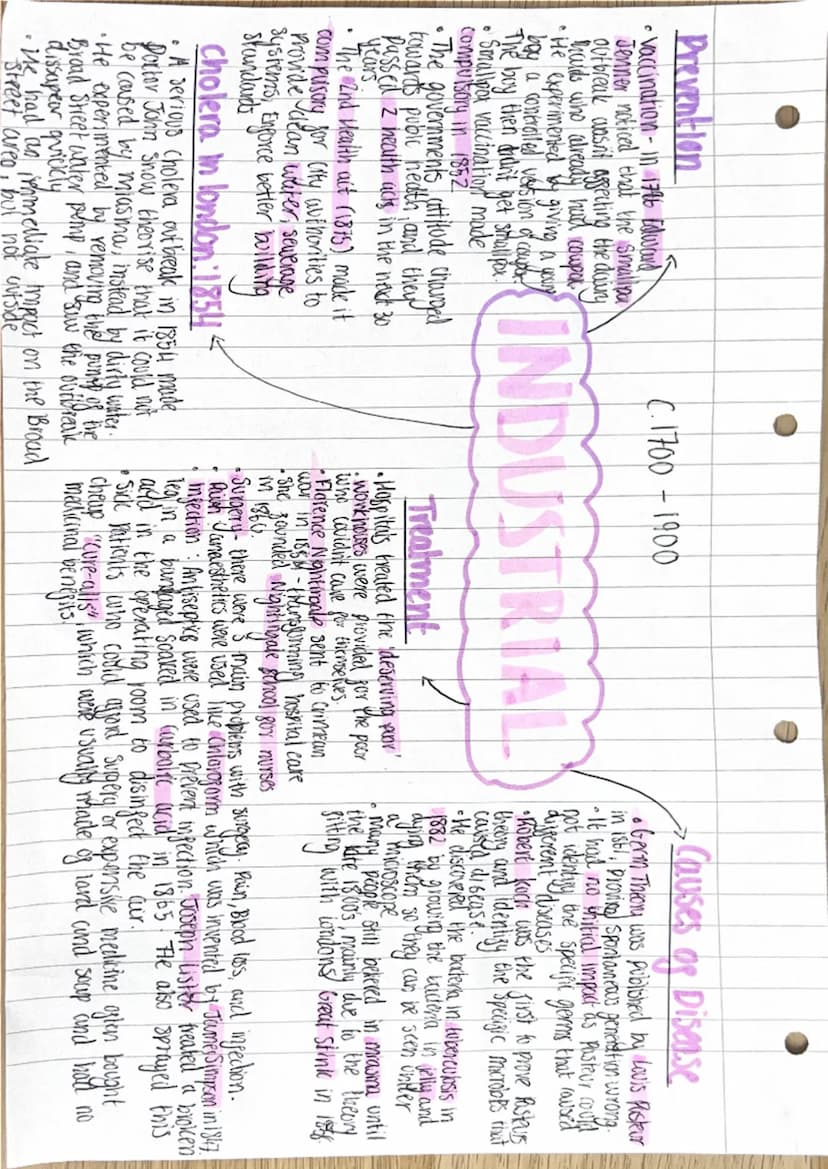 C.1700 - 1900
INDUSTRIAL
Prevention
• Vaccination - in 1796 Edward
Jenner noticed that the smallpox
outbreak wasn't affecting the dairy
maids who already had cowpox.
• He experimented by giving a young
boy a controlled version of cowpox
The boy then didn't get smallpox.
• Smallpox vaccination made
compulsory in 1852
• The governments attitude changed
towards public health, and they
passed 2 health acts in the next 30
years.
• The 2nd Health act (1875) made it
compulsory for city authorities to
provide clean water, sewerage
systems, enforce better building
standards
Cholera in london: 1854
• A serious cholera outbreak in 1854 made
Doctor John Snow theorise that it could not
be caused by miasma, instead by dirty water.
• He experimented by removing the pump of the
Broad Street water pump, and saw the outbreak
dissapear quickly
• He had an immediate impact on the Broad
street area, but not outside
Treatment
• Hospitals treated the 'deserving poor'.
• Workhouses were provided for the poor
who couldn't care for themselves.
• Florence Nightingale sent to crimean
war in 1854 - transforming hospital care
• She founded Nightingale school for nurses
in 1860.
• Surgery - there were 3 main problems with surgery. Pain, Blood loss, and infection.
• Pain: Anaesthetics were used like Chloroform which was invented by James Simpson in 1847.
• Infection: Antiseptics were used to prevent infection. Joseph Lister treated a broken
leg in a bandage soaked in Carbolic acid in 1865. He also sprayed this
acid in the operating room to disinfect the air.
• Sick patients who could afford surgery or expensive medicine often bought
cheap "Cure-alls", which were usually made of lard and soap and had no
medicinal benefits.
Causes of Disease
• Germ Theory was published by Louis Pasteur
in 1861, proving spontaneous generation wrong.
• It had no initial impact as Pasteur could
not identify the specific germs that caused
different diseases
• Robert Koch was the first to prove Pasteurs
theory and identify the specific microbes that
caused disease.
• He discovered the bacteria in tuberculosis in
1882 by growing the bacteria in jelly and
dying them so they can be seen under
a microscope
• Many people still believed in miasma until
the late 1800's, mainly due to the theory
fitting with londons Great Stink in 1858